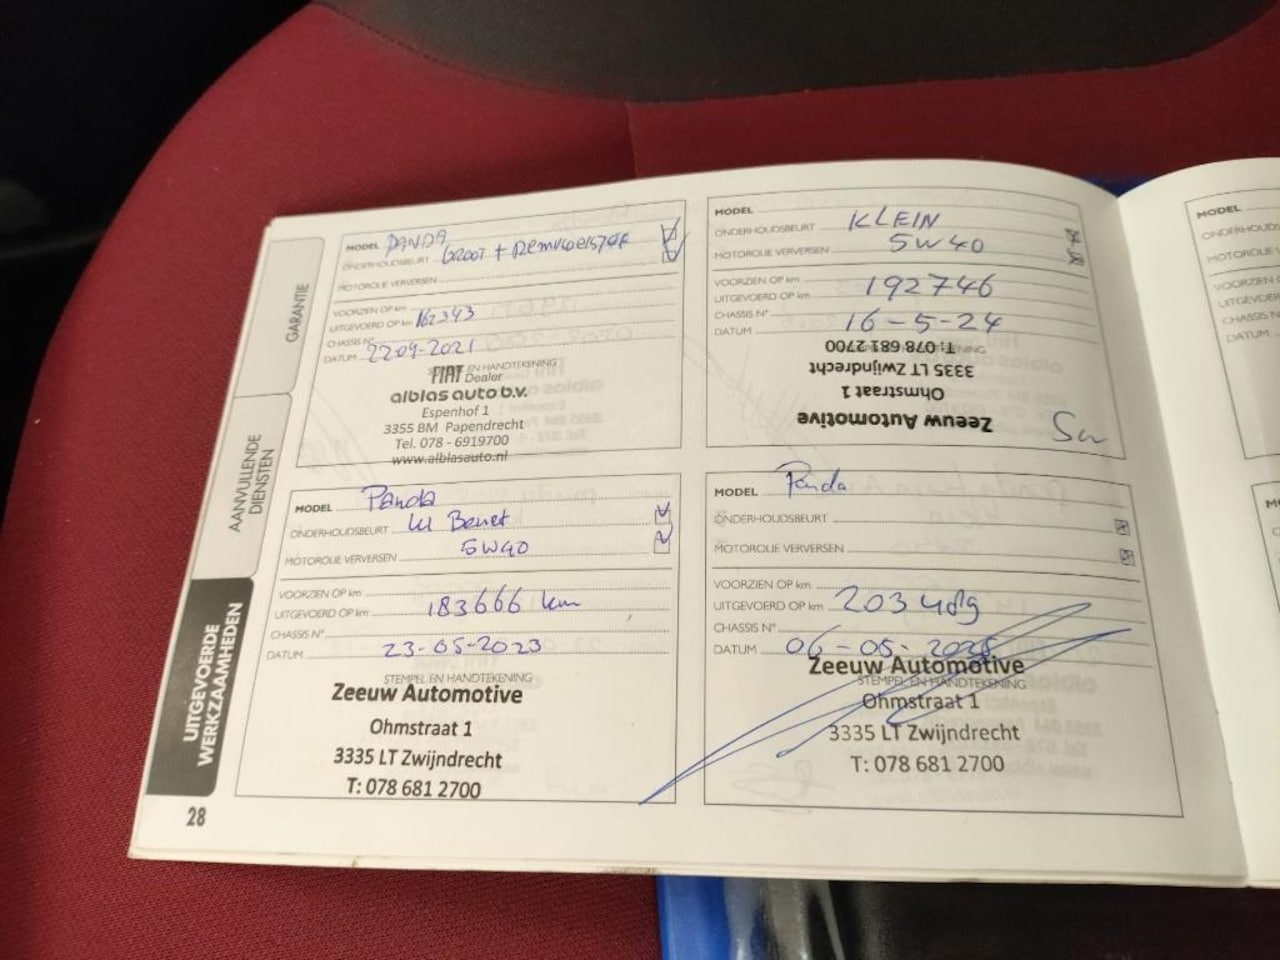 GARANTIE
AANVULLENDE
DIENSTEN
UITGEVOERDE
WERKZAAMHEDEN
28
MODEL PANDA
ONDERHOUDSBEURT GROOT + REMVLOEISTOF
MOTOROLIE VERVERSEN
VOORZIEN OP km
UITGEVOERD OP km 162343
CHASSIS N°
DATUM 22 09-2021
STEMPEL EN HANDTEKENING
FIAT Dealer
alblas auto b.v.
Espenhof 1
3355 BM Papendrecht
Tel. 078 - 6919700
www.alblasauto.nl
MODEL
ONDERHOUDSBEURT KLEIN
MOTOROLIE VERVERSEN 5W40
VOORZIEN OP km
UITGEVOERD OP km 192746
CHASSIS N°
DATUM 16-5-24
T: 078 681 2700
3335 LT Zwijndrecht
Ohmstraat 1
Zeeuw Automotive
MODEL Panda
ONDERHOUDSBEURT
MOTOROLIE VERVERSEN 5W40
VOORZIEN OP km
UITGEVOERD OP km 183666 km
CHASSIS N°
DATUM 23-05-2023
STEMPEL EN HANDTEKENING
Zeeuw Automotive
Ohmstraat 1
3335 LT Zwijndrecht
T: 078 681 2700
MODEL Panda
ONDERHOUDSBEURT
MOTOROLIE VERVERSEN
VOORZIEN OP km
UITGEVOERD OP km
CHASSIS N°
DATUM 06-05-
Zeeuw Automotive
STEMPEL EN HANDTEKENING
Ohmstraat 1
3335 LT Zwijndrecht
T: 078 681 2700
MODEL